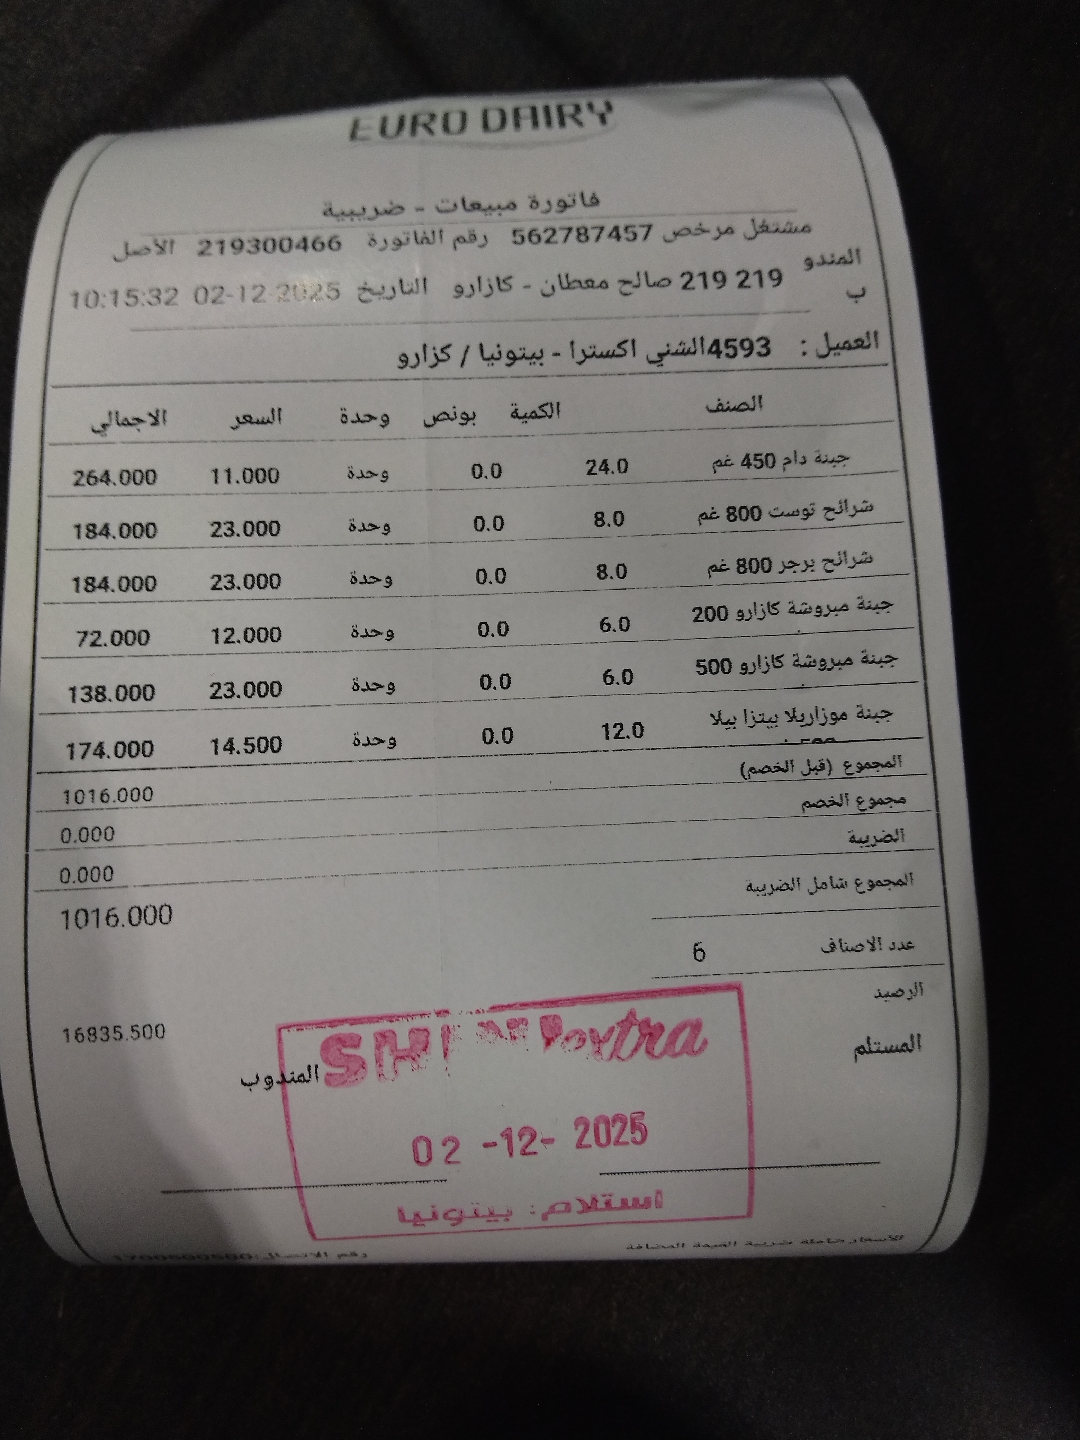 EURO DAIRY
فاتورة مبيعات - ضريبية
مشتغل مرخص 562787457 رقم الفاتورة 219300466 الأصل
المندوب 219 219 صالح معطان - كازارو التاريخ 02-12-2025 10:15:32
العميل : 4593الشني اكسترا - بيتونيا / كزارو
الصنف الكمية بونص وحدة السعر الاجمالي
جبنة دام 450 غم 24.0 0.0 وحدة 11.000 264.000
شرائح توست 800 غم 8.0 0.0 وحدة 23.000 184.000
شرائح برجر 800 غم 8.0 0.0 وحدة 23.000 184.000
جبنة مبروشة كازارو 200 6.0 0.0 وحدة 12.000 72.000
جبنة مبروشة كازارو 500 6.0 0.0 وحدة 23.000 138.000
جبنة موزاريلا بيتزا بيلا 12.0 0.0 وحدة 14.500 174.000
المجموع (قبل الخصم) 1016.000
مجموع الخصم 0.000
الضريبة 0.000
المجموع شامل الضريبة 1016.000
عدد الاصناف 6
الرصيد 16835.500
المستلم المندوب
extra
02 -12- 2025
استلام: بيتونيا
الأسعار شاملة ضريبة القيمة المضافة رقم الاتصال:1700500500